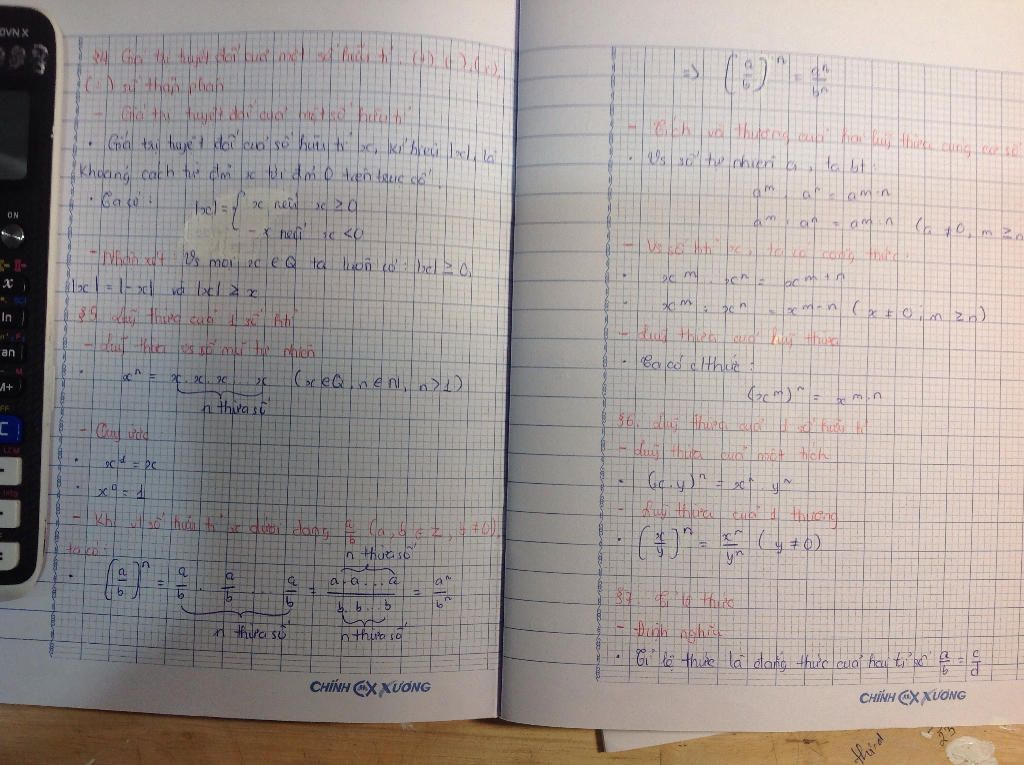 §4 Giá trị tuyệt đối của một số hữu tỉ. (+), (-), (x),
(:) số thập phân
- Giá trị tuyệt đối của một số hữu tỉ
• Giá trị tuyệt đối của số hữu tỉ x, kí hiệu |x|, là
khoảng cách từ đm x tới đm 0 trên trục số.
• Ta có: |x| = { x nếu x ≥ 0
- x nếu x < 0
- Nhận xét: Vs mọi x ∈ Q ta luôn có: |x| ≥ 0,
|x| = |-x| và |x| ≥ x
§5 Luỹ thừa của 1 số htỉ
- Luỹ thừa vs số mũ tự nhiên
• xⁿ = x . x . x ... x (x ∈ Q, n ∈ N, n > 1)
n thừa số
- Quy ước
• x¹ = x
• x⁰ = 1
- Khi vt số hữu tỉ x dưới dạng a/b (a, b ∈ Z, b ≠ 0),
ta có:
n thừa số
• (a/b)ⁿ = a/b . a/b ... a/b = a.a...a / b.b...b = aⁿ/bⁿ
n thừa số n thừa số
=> (a/b)ⁿ = aⁿ/bⁿ
- Tích và thương của hai luỹ thừa cùng cơ số
• Vs số tự nhiên a, ta bt:
aᵐ . aⁿ = aᵐ·ⁿ
aᵐ : aⁿ = aᵐ⁻ⁿ (a ≠ 0, m ≥ n
- Vs số htỉ x, ta có công thức:
• xᵐ . xⁿ = xᵐ⁺ⁿ
• xᵐ : xⁿ = xᵐ⁻ⁿ (x ≠ 0, m ≥ n)
- Luỹ thừa của luỹ thừa
• Ta có c/thức:
(xᵐ)ⁿ = xᵐ·ⁿ
§6. Luỹ thừa của 1 số hữu tỉ
- Luỹ thừa của một tích
• (x.y)ⁿ = xⁿ . yⁿ
- Luỹ thừa của 1 thương
• (x/y)ⁿ = xⁿ/yⁿ (y ≠ 0)
§7. Tỉ lệ thức
- Định nghĩa
• Tỉ lệ thức là đẳng thức của hai tỉ số a/b = c/d
CHÍNH XƯƠNG
CHÍNH XƯƠNG
OVN X
ON
x
ln
an
M+
C
third